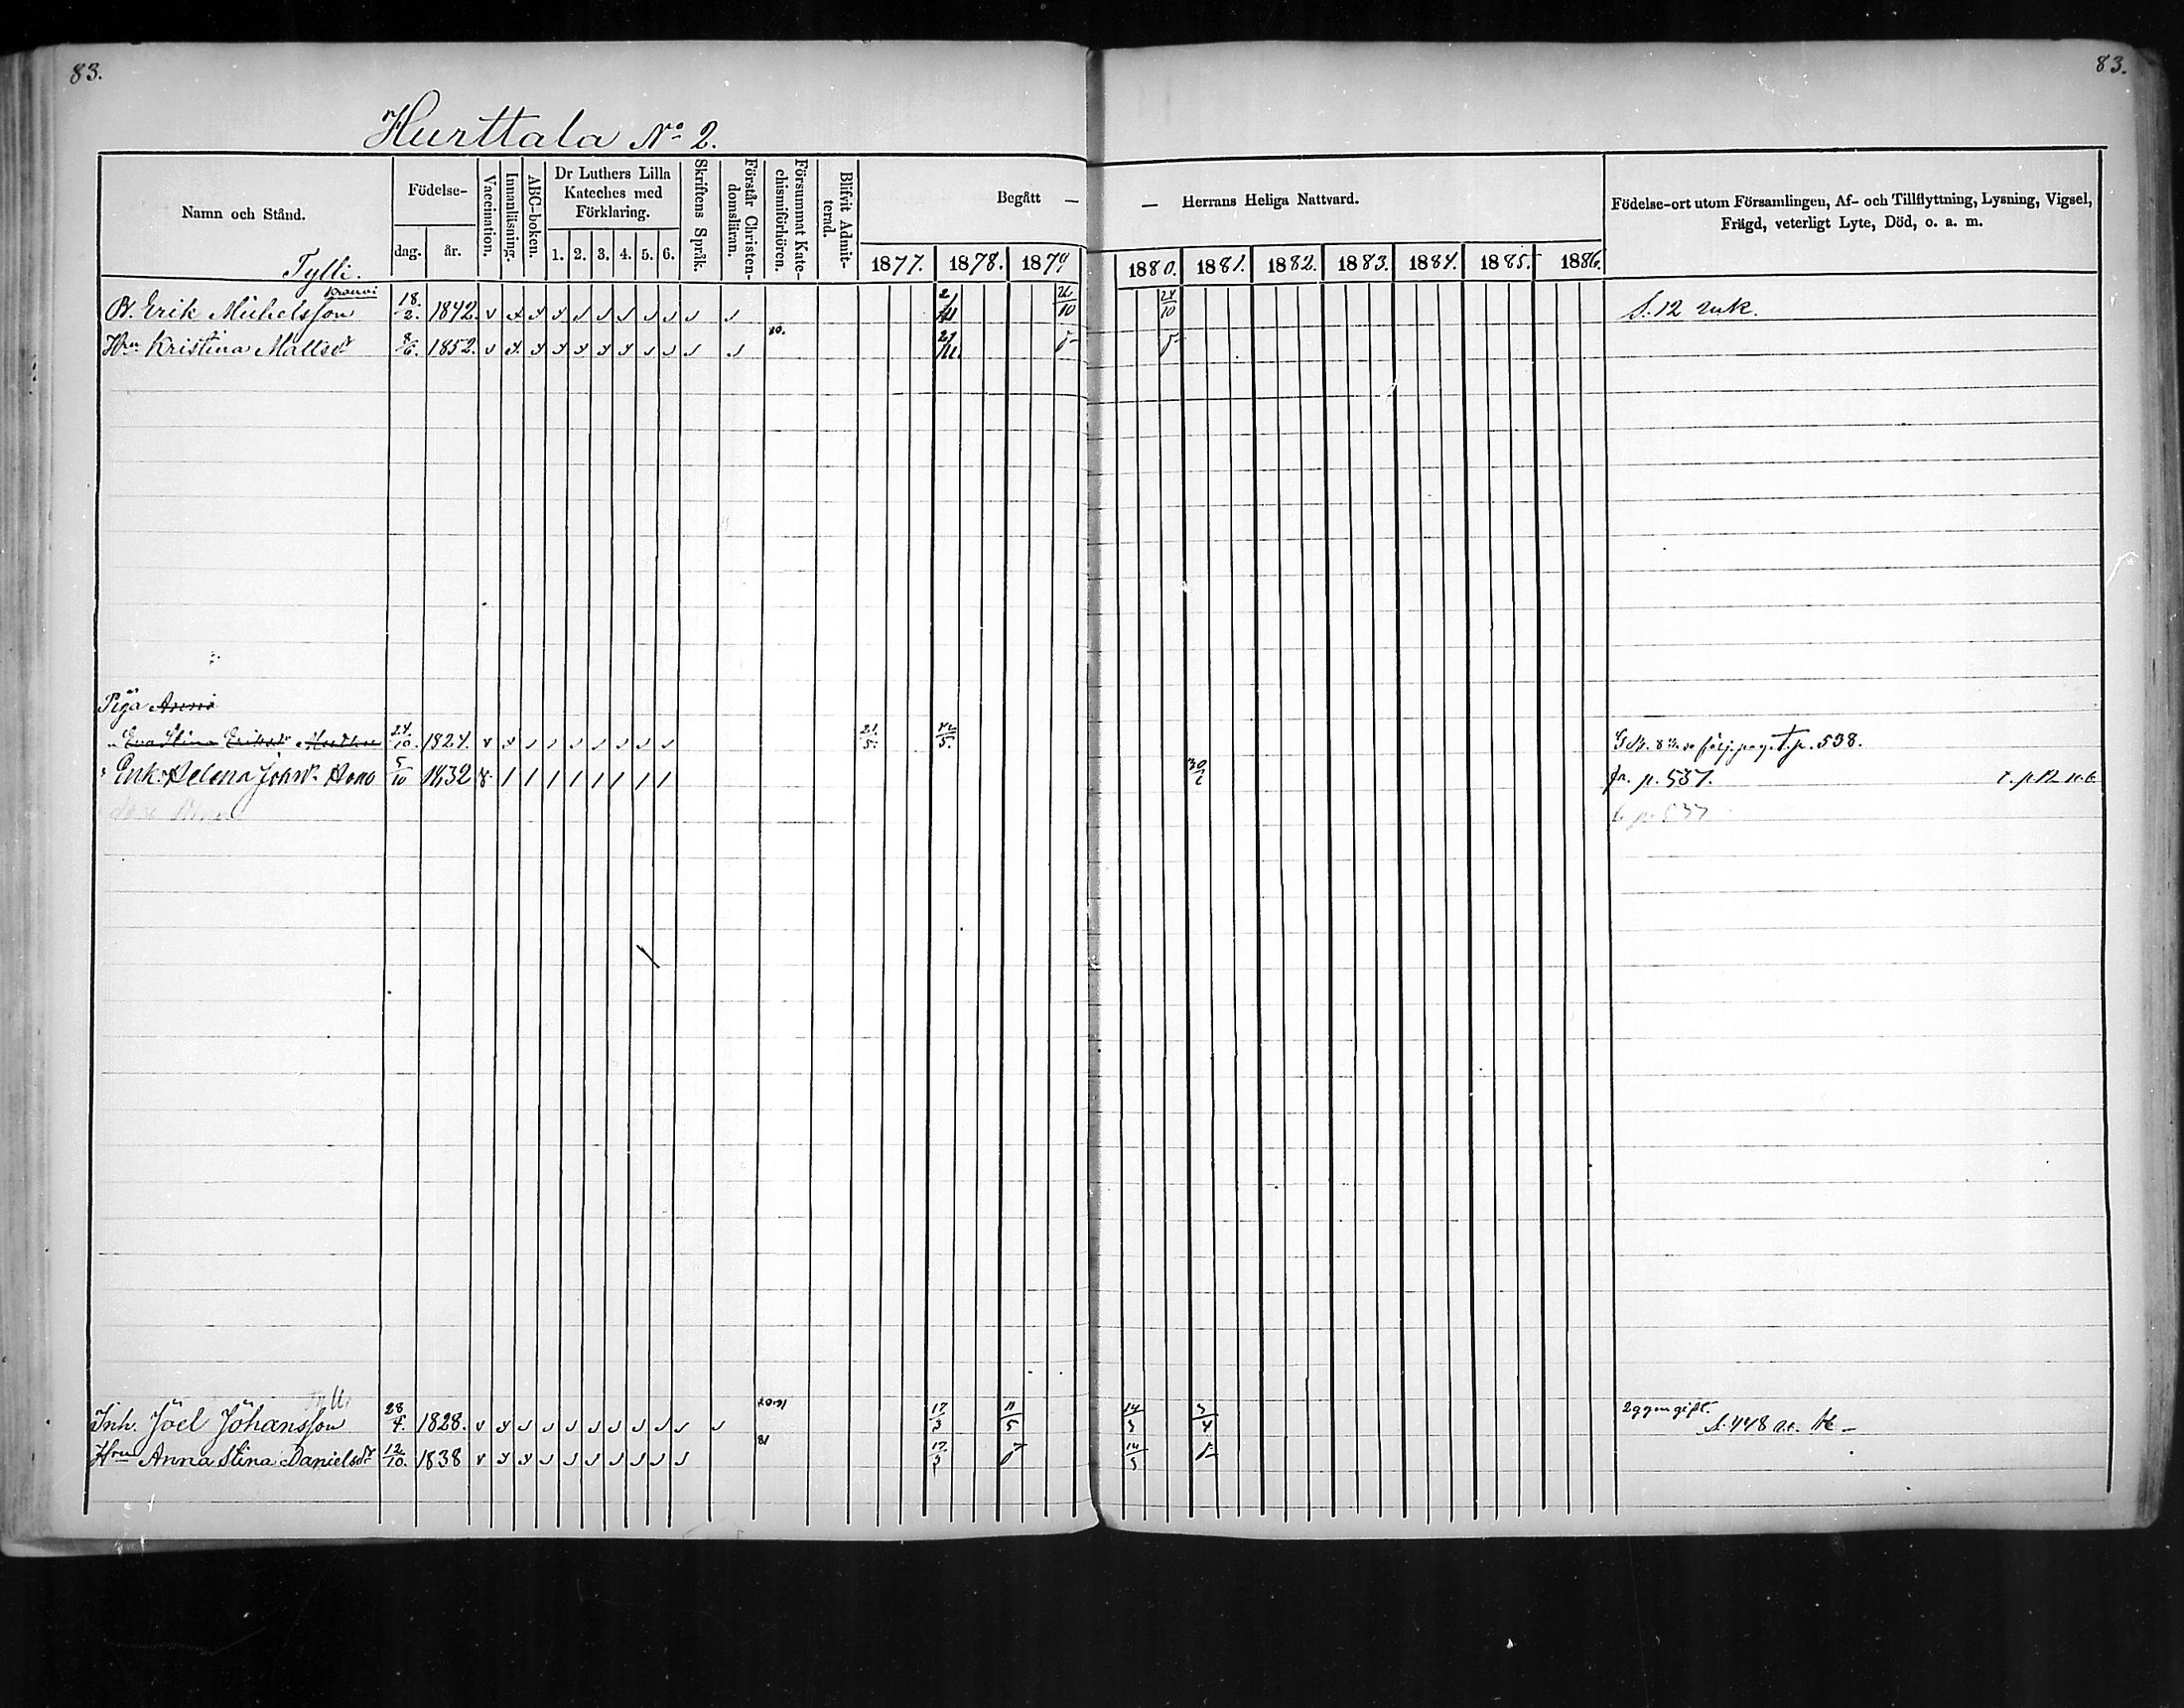 83.
83.
Hurttala No 2.
Namn och Stånd.
Födelse-
dag.
år.
Vaccination.
Innanläsning.
ABC-boken.
Dr Luthers Lilla
Kateches med
Förklaring.
1. 2. 3. 4. 5. 6.
Skriftens Språk.
Förstår Christen-
domsläran.
Försummat Kate-
chismiförhören.
Blifvit Admit-
terad.
Begått —
— Herrans Heliga Nattvard.
1877. 1878. 1879 1880. 1881. 1882. 1883. 1884. 1885. 1886.
Födelse-ort utom Församlingen, Af- och Tillflyttning, Lysning, Vigsel,
Frägd, veterligt Lyte, Död, o. a. m.
Tylli.
B. Erik Michelsson 18/2. 1842. 26/10 24/10 S. 12
Hru Kristina Mattsdr 1852. 80.
Piga Anna
Eva Stina Eriksdr 24/10. 1824. 21/5. följ. pag. p. 538.
Enk. Helena Johsdr 5/10 1832 30/ fr. p. 537.
p. 537
Inh. Joel Johansson 28/4. 1828. 17/3 11/5 14/3 3/4 2 ggn gift. S. 448
Hru Anna Stina Danielsdr 12/10. 1838 81 17/3 14/3